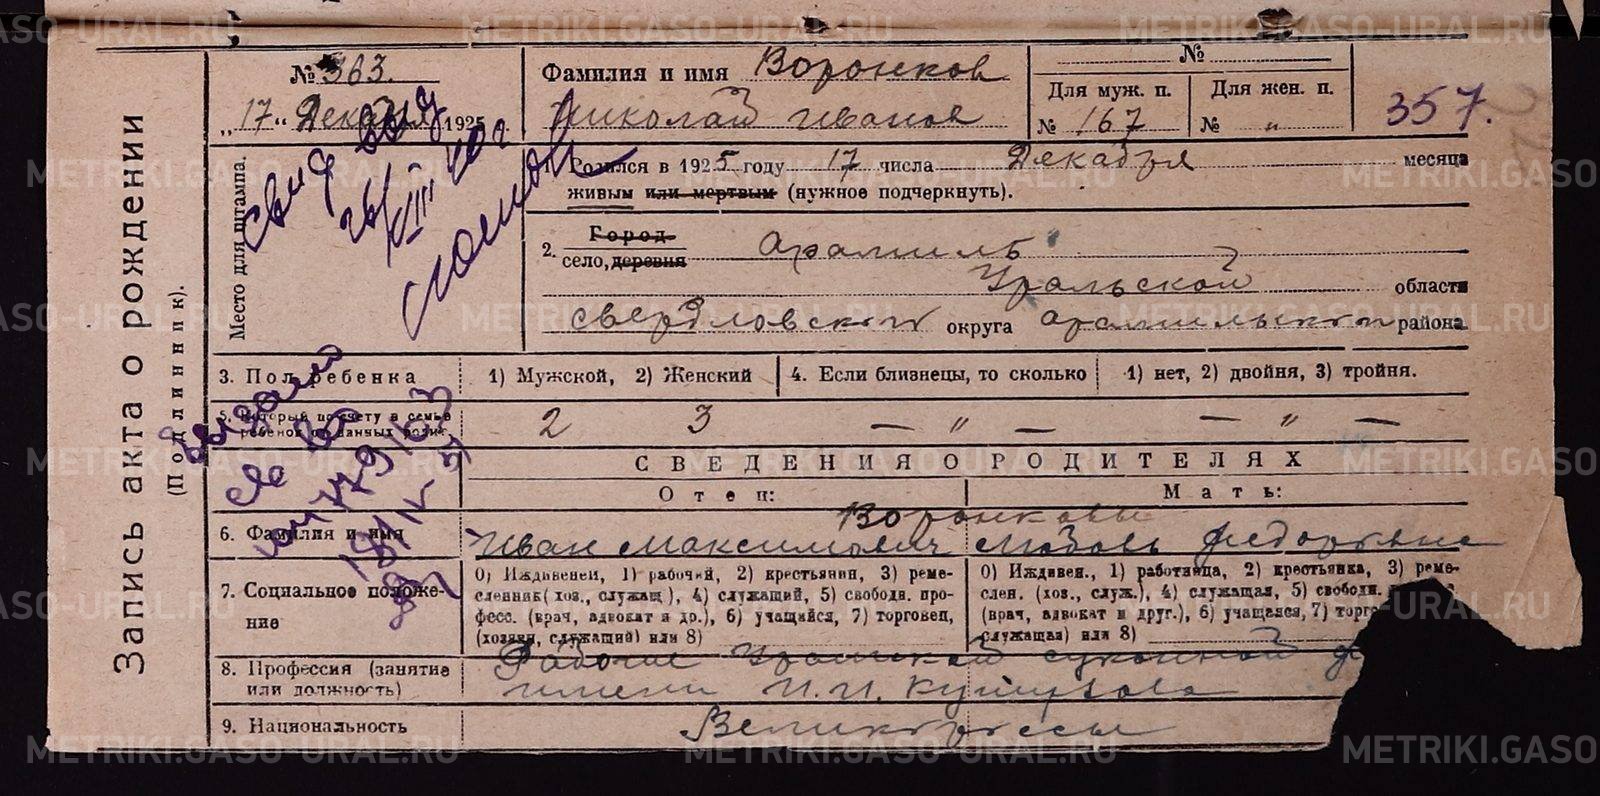 Запись акта о рождении
(Подлинник).
№ 363.
„17“ Декабря 1925 г.
Фамилия и имя Воронков
Николай Иванов
№
Для муж. п.
Для жен. п.
№ 167
№ „
357.
Место для штампа.
1. Родился в 1925 году 17 числа Декабря месяца
живым или мертвым (нужное подчеркнуть).
2. Город
село, деревня Арамиль
Уральской области
Свердловского округа Арамильского района
3. Пол ребенка
1) Мужской, 2) Женский
4. Если близнецы, то сколько
1) нет, 2) двойня, 3) тройня.
5. Который по счету в семье
ребенок от данных родит.
2 3 — „ — — „ —
СВЕДЕНИЯ О РОДИТЕЛЯХ
Отец:
Мать:
Воронковы
6. Фамилия и имя
Иван Максимович
Любовь Федоровна
7. Социальное положе-
ние
0) Иждивенец, 1) рабочий, 2) крестьянин, 3) реме-
сленник (хоз., служащ.), 4) служащий, 5) свободн. про-
фесс. (врач, адвокат и др.), 6) учащийся, 7) торговец,
(хозяин, служащий) или 8)
0) Иждивен., 1) работница, 2) крестьянка, 3) реме-
слен. (хоз., служ.), 4) служащая, 5) свободн.
(врач, адвокат и друг.), 6) учащаяся, 7) торг
служащая) или 8)
8. Профессия (занятие
или должность)
Рабочие Уральской суконной ф
имени
9. Национальность
Великороссы
выдано
METRIKI.GASO-URAL.RU